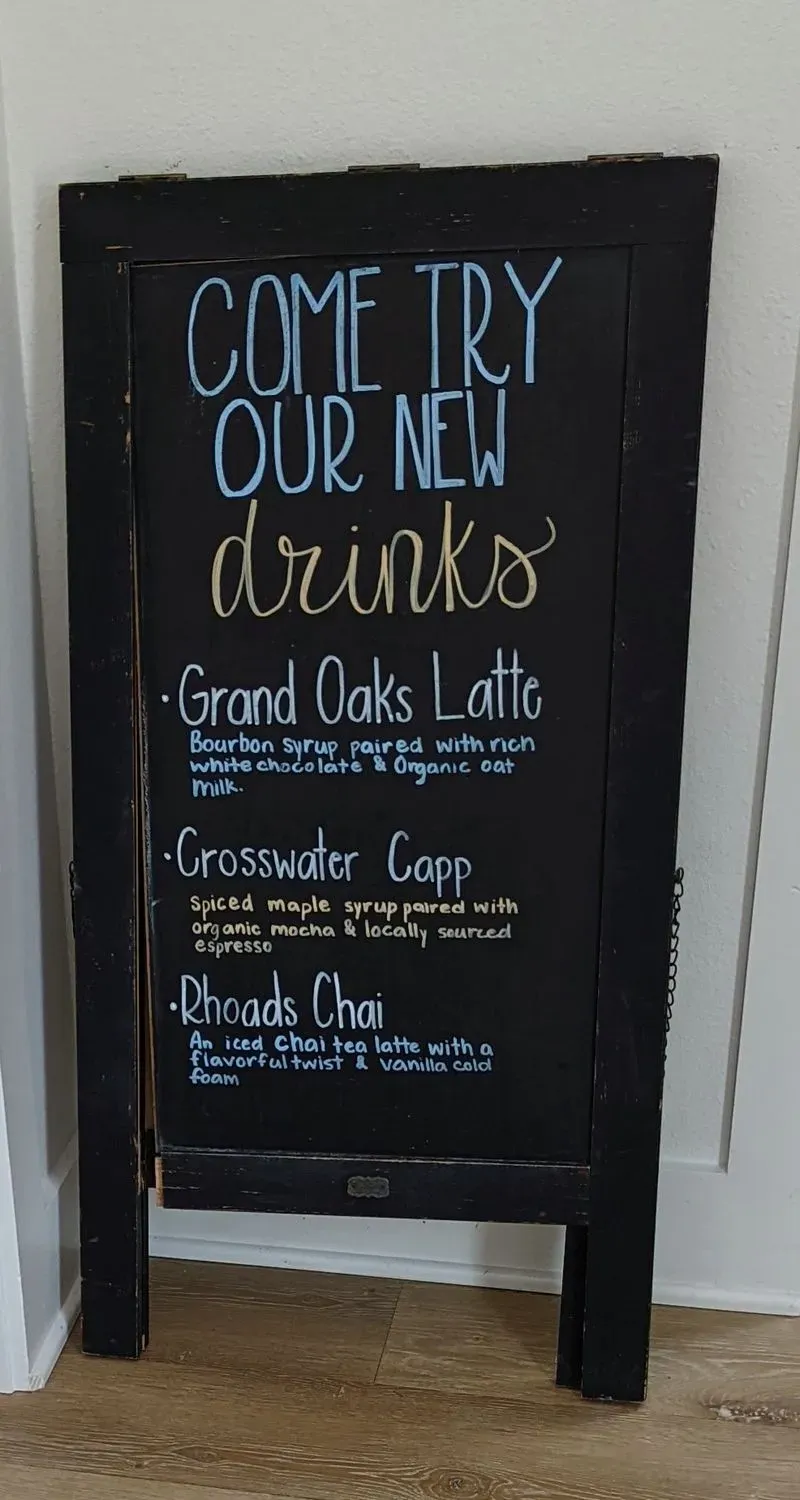 COME TRY
OUR NEW
drinks
• Grand Oaks Latte
Bourbon syrup paired with rich
white chocolate & Organic oat
milk.
• Crosswater Capp
Spiced maple syrup paired with
organic mocha & locally sourced
espresso
• Rhoads Chai
An iced chai tea latte with a
flavorful twist & vanilla cold
foam